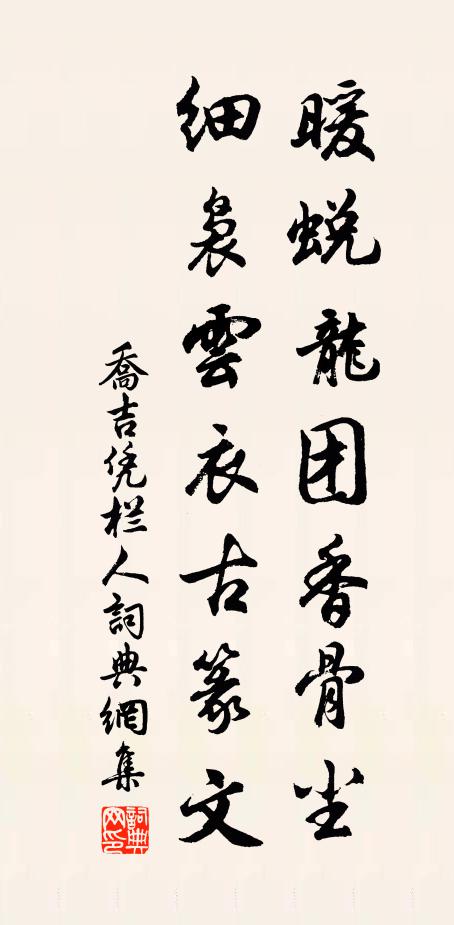 暖蜕龍团香骨尘
细袅雲衣古篆文
喬吉凭栏人詞典網集
詞典
网印